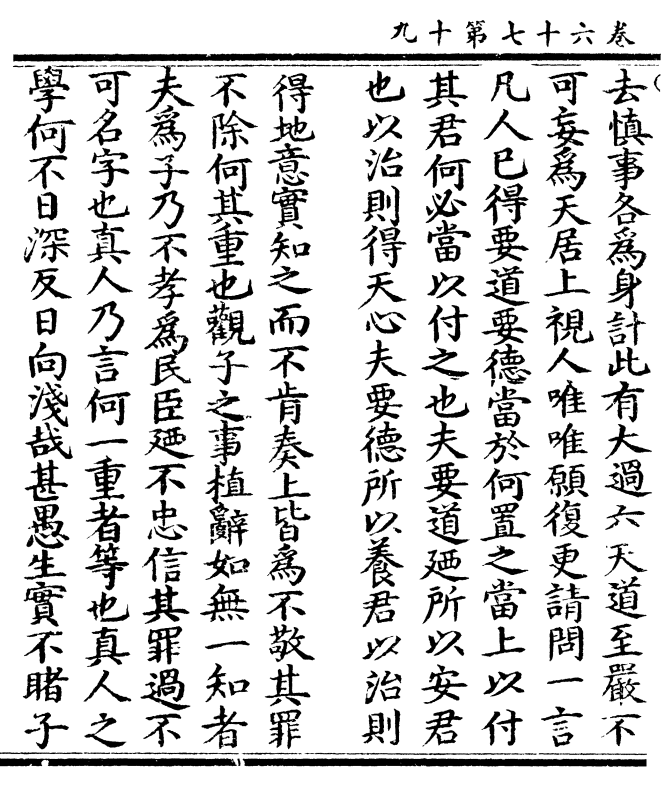 卷六十七第十九
去慎事各爲身計此有大過六天道至嚴不
可妄爲天居上視人唯唯願復更請問一言
凡人已得要道要德當於何置之當上以付
其君何必當以付之也夫要道廼所以安君
也以治則得天心夫要德所以養君以治則
得地意實知之而不肯奏上皆爲不敬其罪
不除何其重也觀子之事植辭如無一知者
夫爲子乃不孝爲民臣廼不忠信其罪過不
可名字也真人乃言何一重者等也真人之
學何不日深反日向淺哉甚愚生實不睹子